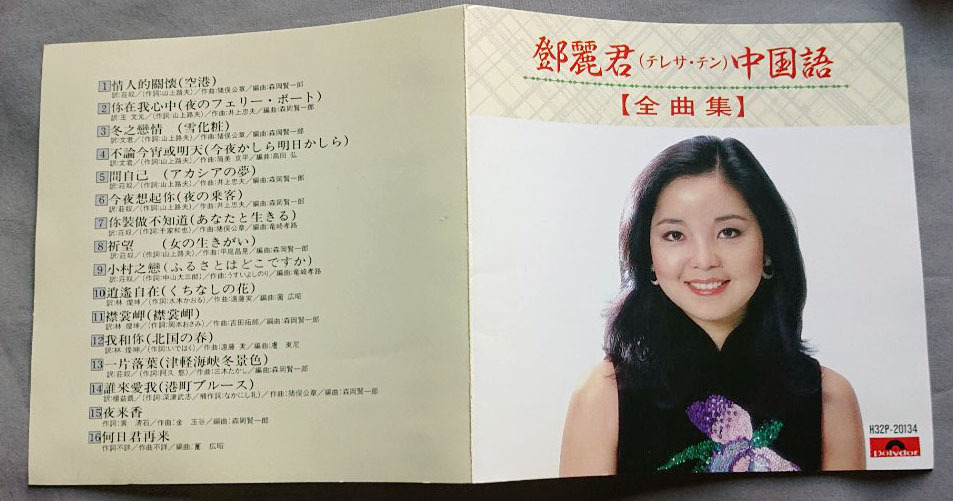 1 情人的關懷(空港)
訳:荘奴/(作詞:山上路夫)/作曲:猪俣公章/編曲:森岡賢一郎
2 你在我心中(夜のフェリー・ボート)
訳:王 文元/(作詞:山上路夫)/作曲:井上忠夫/編曲:森岡賢一郎
3 冬之戀情 (雪化粧)
訳:文君/(作詞:山上路夫)/作曲:猪俣公章/編曲:森岡賢一郎
4 不論今宵或明天(今夜かしら明日かしら)
訳:文君/(作詞:山上路夫)/作曲:筒美 京平/編曲:高田 弘
5 問自己 (アカシアの夢)
訳:荘奴/(作詞:山上路夫)/作曲:井上忠夫/編曲:森岡賢一郎
6 今夜想起你(夜の乗客)
訳:荘奴/(作詞:山上路夫)/作曲:井上忠夫/編曲:森岡賢一郎
7 你裝做不知道(あなたと生きる)
訳:荘奴/(作詞:千家和也)/作曲:猪俣公章/編曲:竜崎孝路
8 祈望 (女の生きがい)
訳:荘奴/(作詞:山上路夫)/作曲:平尾昌晃/編曲:森岡賢一郎
9 小村之戀(ふるさとはどこですか)
訳:荘奴/(作詞:中山大三郎)/作曲:うすいよしのり/編曲:竜崎孝路
10 逍遙自在(くちなしの花)
訳:林 煌坤/(作詞:水木かおる)/作曲:遠藤実/編曲:藺 広昭
11 襟裳岬(襟裳岬)
訳:林 煌坤/(作詞:岡本おさみ)/作曲:吉田拓郎/編曲:森岡賢一郎
12 我和你(北国の春)
訳:林 煌坤/(作詞:いではく)/作曲:遠藤 実/編曲:盧 東尼
13 一片落葉(津軽海峡冬景色)
訳:荘奴/(作詞:阿久 悠)/作曲:三木たかし/編曲:森岡賢一郎
14 誰來愛我(港町ブルース)
訳:楼益凱/(作詞:深津武志/補作詞:なかにし礼)/作曲:猪俣公章/編曲:森岡賢一郎
15 夜来香
作詞:黄 清石/作曲:金 玉谷/編曲:森岡賢一郎
16 何日君再来
作詞不詳/作曲不詳/編曲:藺 広昭
鄧麗君(テレサ・テン)中国語
【全曲集】
H32P-20134
Polydor